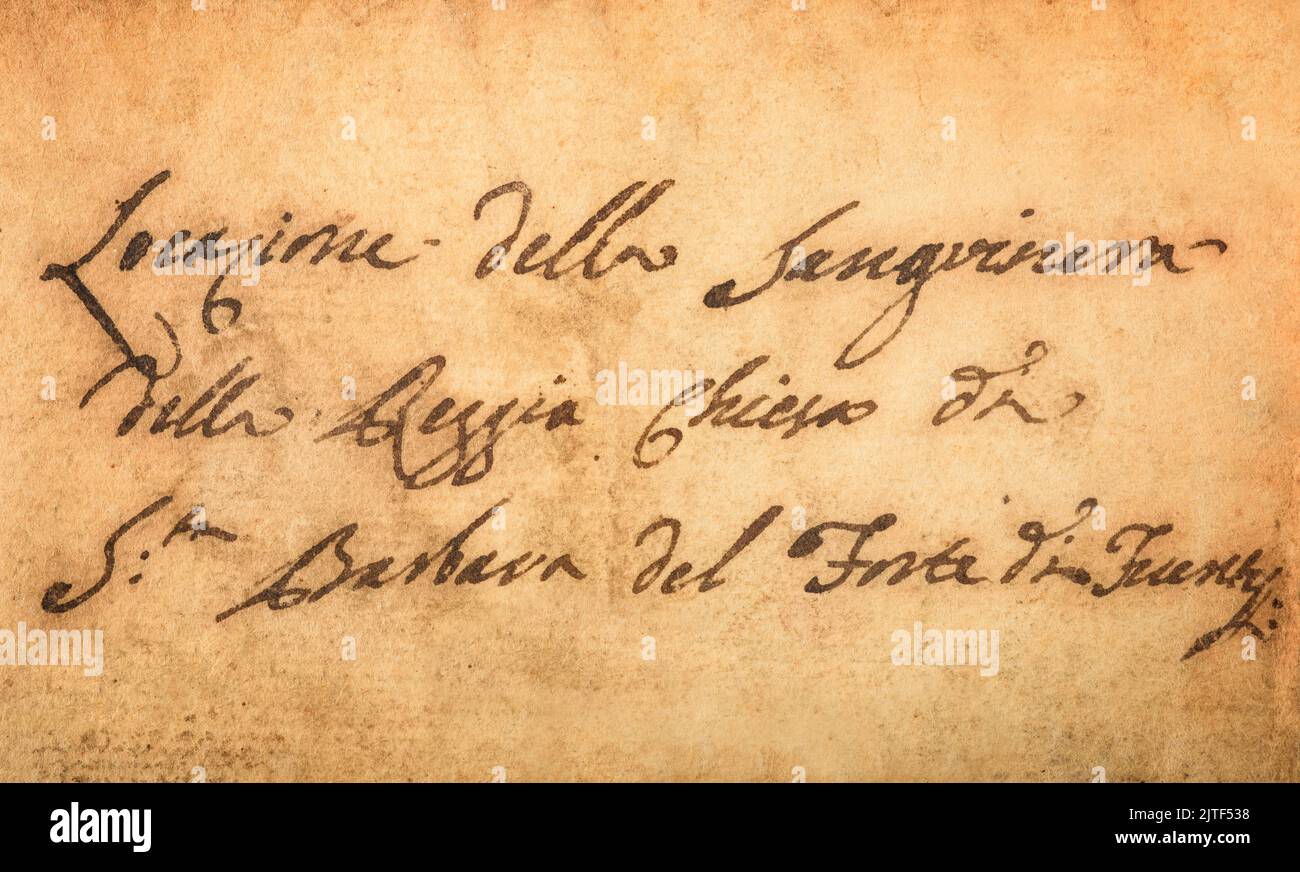 Locazione della Sanguinera
della Reggia Chiesa di
S.ta Barbara del Forte di Fuentes
alamy
Image ID: 2JTF538
www.alamy.com